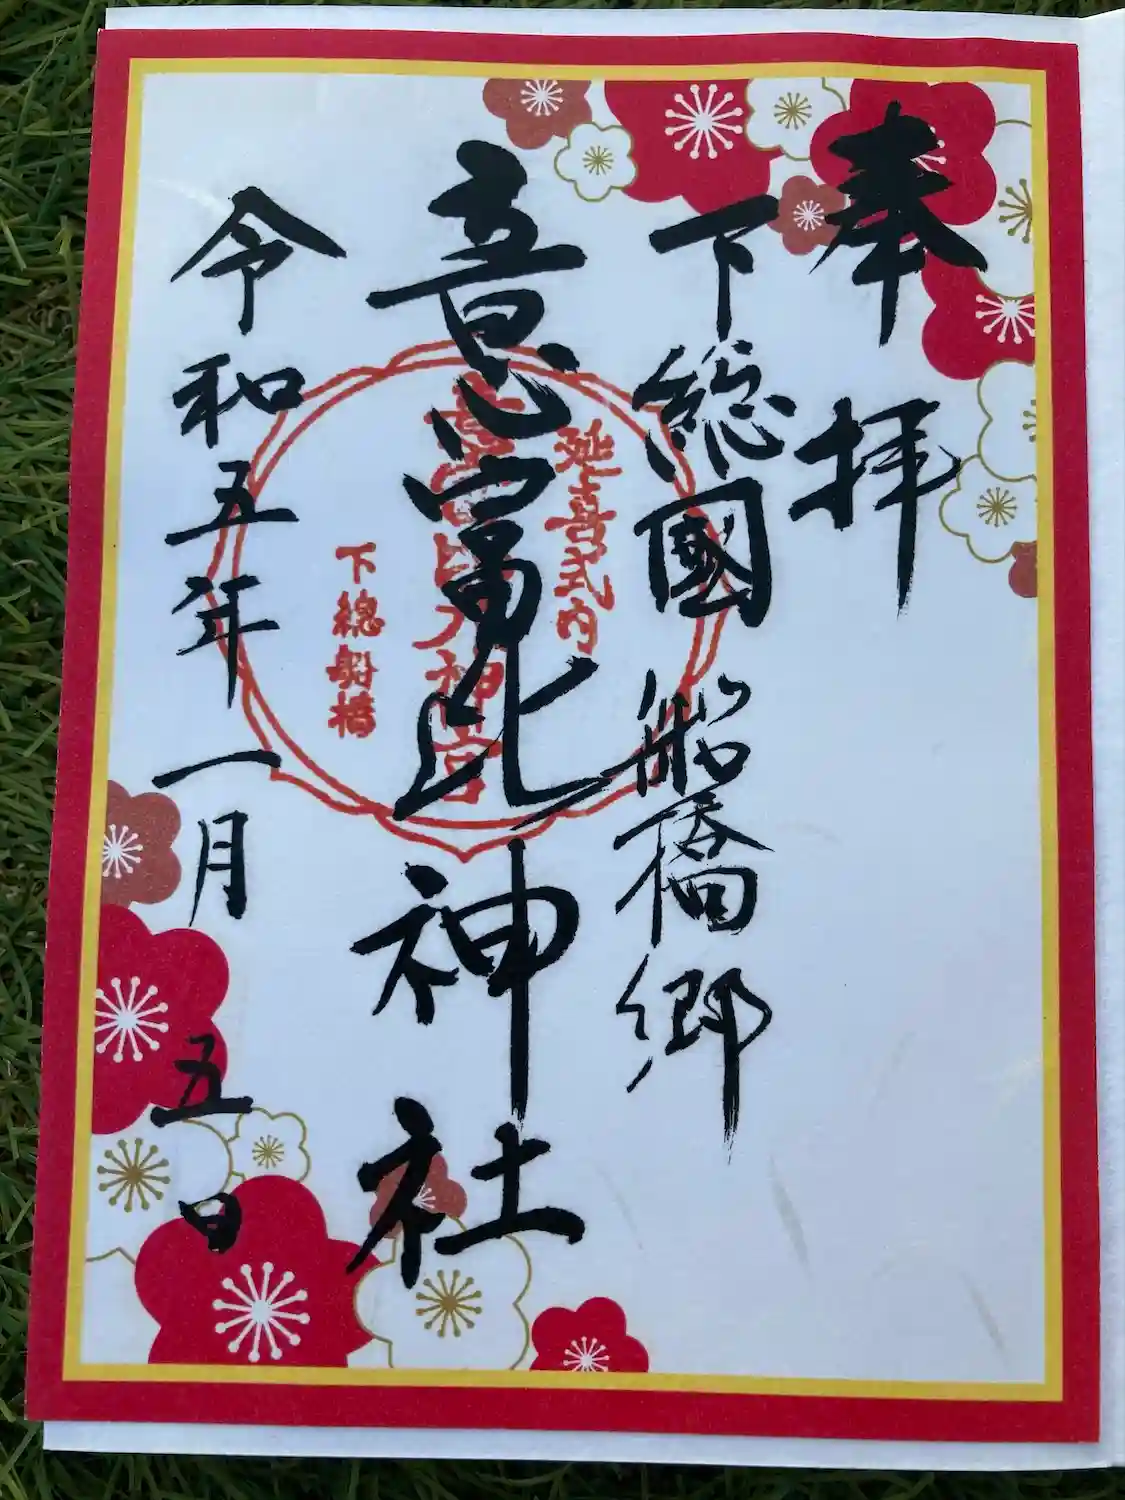 奉拝
下総國船橋郷
意富比神社
令和五年一月五日
延喜式内
意富比大神宮
下總船橋